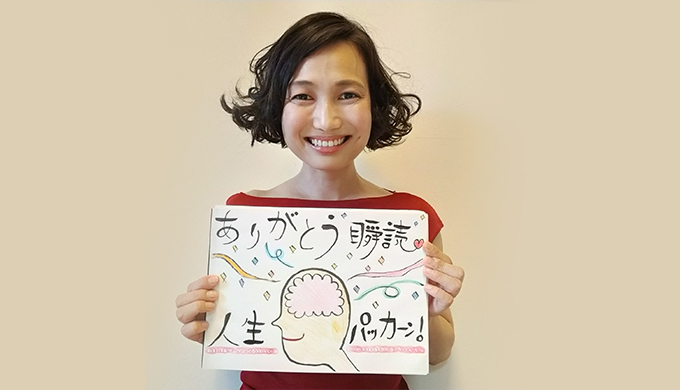 ありがとう瞬読
人生パッカーン!